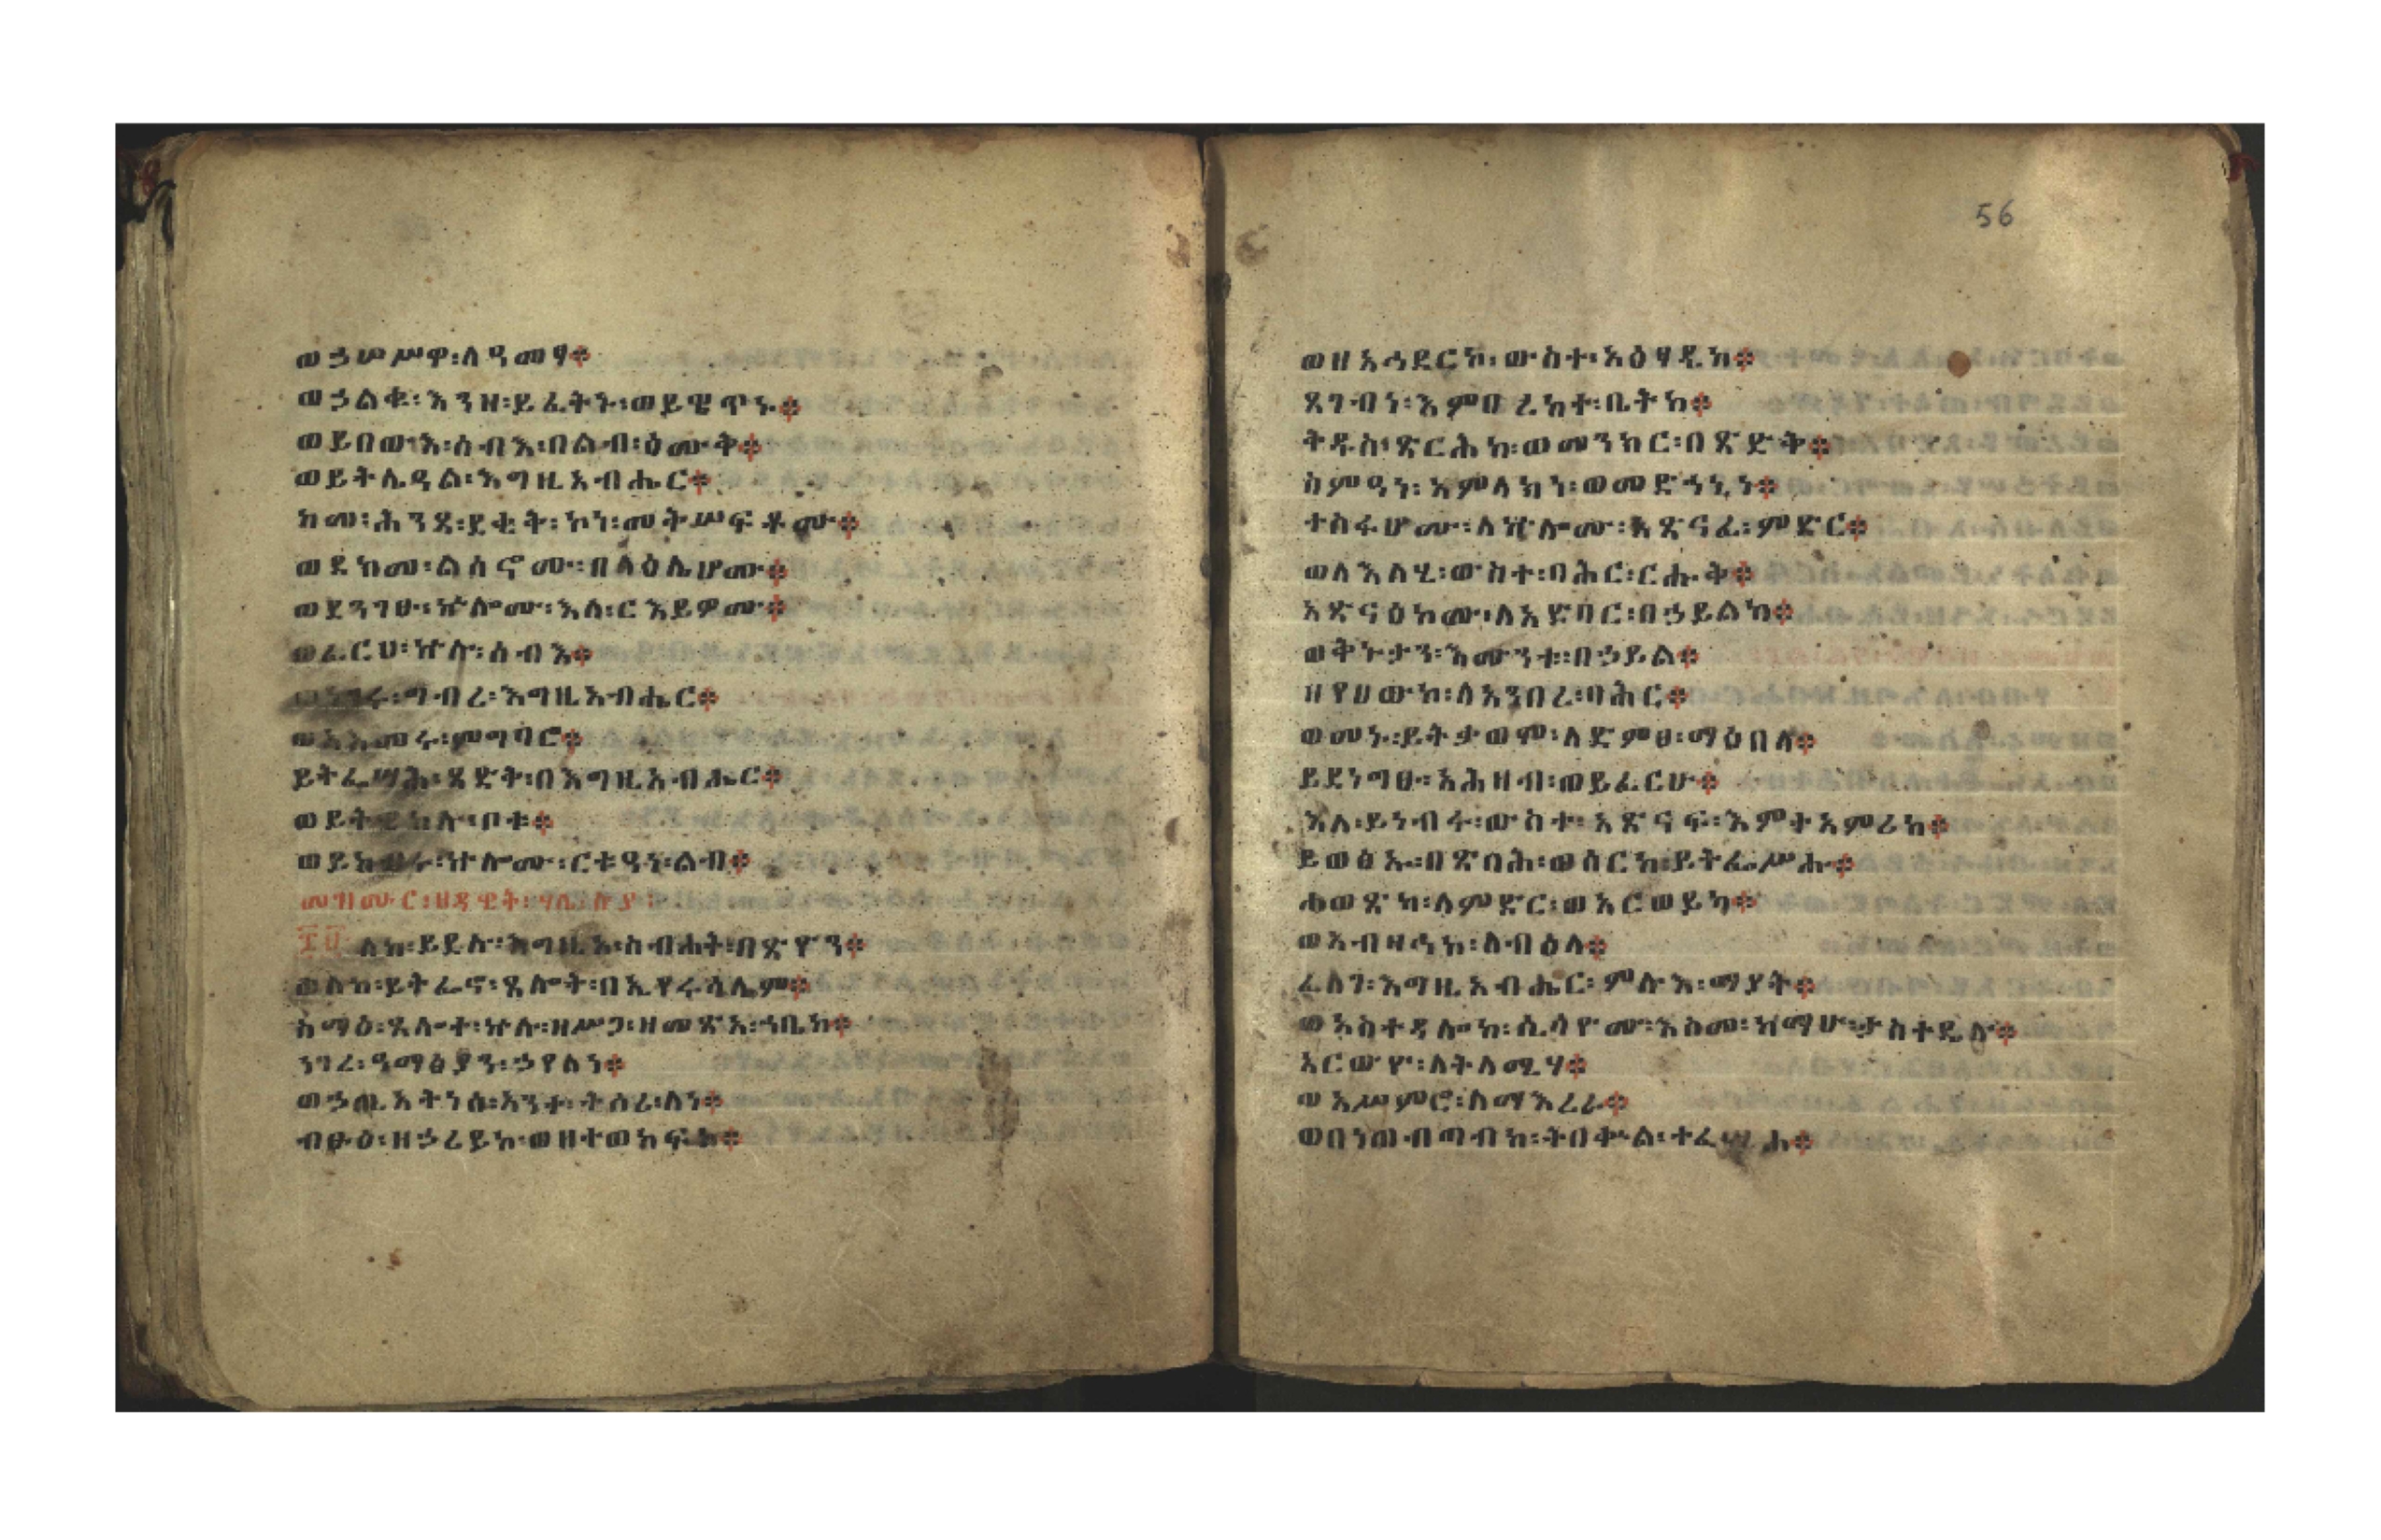 ወኃሠሥዋ፡ለዓመፃ፨
ወኃልቁ፡እንዘ፡ይፈትኑ፡ወይዌጥኑ፨
ወይበውእ፡ሰብእ፡በልብ፡ዕሙቅ፨
ወይትሌዓል፡እግዚአብሔር፨
ከመ፡ሕንጻ፡ደቂቅ፡ኮነ፡መቅሠፍቶሙ፨
ወደከመ፡ልሳኖሙ፡በላዕሌሆሙ፨
ወደንገፁ፡ኵሎሙ፡እለ፡ርእይዎሙ፨
ወፈርሀ፡ኵሉ፡ሰብእ፨
ወነገሩ፡ግብረ፡እግዚአብሔር፨
ወአእመሩ፡ምግባሮ፨
ይትፌሣሕ፡ጻድቅ፡በእግዚአብሔር፨
ወይትዌከሉ፡ቦቱ፨
ወይከብሩ፡ኵሎሙ፡ርቱዓነ፡ልብ፨
መዝሙር፡ዘዳዊት፡ማኅሌት፡
፷፬ ለከ፡ይደሉ፡እግዚኦ፡ስብሐት፡በጽዮን፨
ወለከ፡ይትፌኖ፡ጸሎት፡በኢየሩሳሌም፨
ስማዕ፡ጸሎተ፡ኵሉ፡ዘሥጋ፡ዘመጽአ፡ኀቤከ፨
ነገረ፡ዓማፅያን፡ኃየለነ፨
ወኃጢአትነሰ፡አንተ፡ትሰሪ፡ለነ፨
ብፁዕ፡ዘኃረይኮ፡ወዘተወከፍኮ፨
56
ወዘአኅደርኮ፡ውስተ፡አዕፃዲከ፨
ጸገብነ፡እምበረከተ፡ቤትከ፨
ቅዱስ፡ጽርሕከ፡ወመንክር፡በጽድቅ፨
ስምዓነ፡አምላክነ፡ወመድኀኒነ፨
ተስፋሆሙ፡ለኵሎሙ፡አጽናፈ፡ምድር፨
ወለእለሂ፡ውስተ፡ባሕር፡ርሑቅ፨
አጽናዕኮሙ፡ለአድባር፡በኃይልከ፨
ወቅኑታን፡እሙንቱ፡በኃይል፨
ዘየሀውኮ፡ለአንበረ፡ባሕር፨
ወመኑ፡ይትቃወሞ፡ለድምፀ፡ማዕበሉ፨
ይደነግፁ፡አሕዛብ፡ወይፈርሁ፨
እለ፡ይነብሩ፡ውስተ፡አጽናፍ፡እምተአምሪከ፨
ይወፅኡ፡በጽባሕ፡ወሰርከ፡ይትፌሥሑ፨
ሐወጽካ፡ለምድር፡ወአርወይካ፨
ወአብዛኅኮ፡ለብዕላ፨
ፈለገ፡እግዚአብሔር፡ምሉእ፡ማያት፨
ወአስተዳሎከ፡ሲሳዮሙ፡እስመ፡ከማሁ፡ታስተዴሉ፨
አርውዮ፡ለትለሚሃ፨
ወአሥምሮ፡ለማእረራ፨
ወበነጠብጣብከ፡ትበቍል፡ተፈሣሒ፨